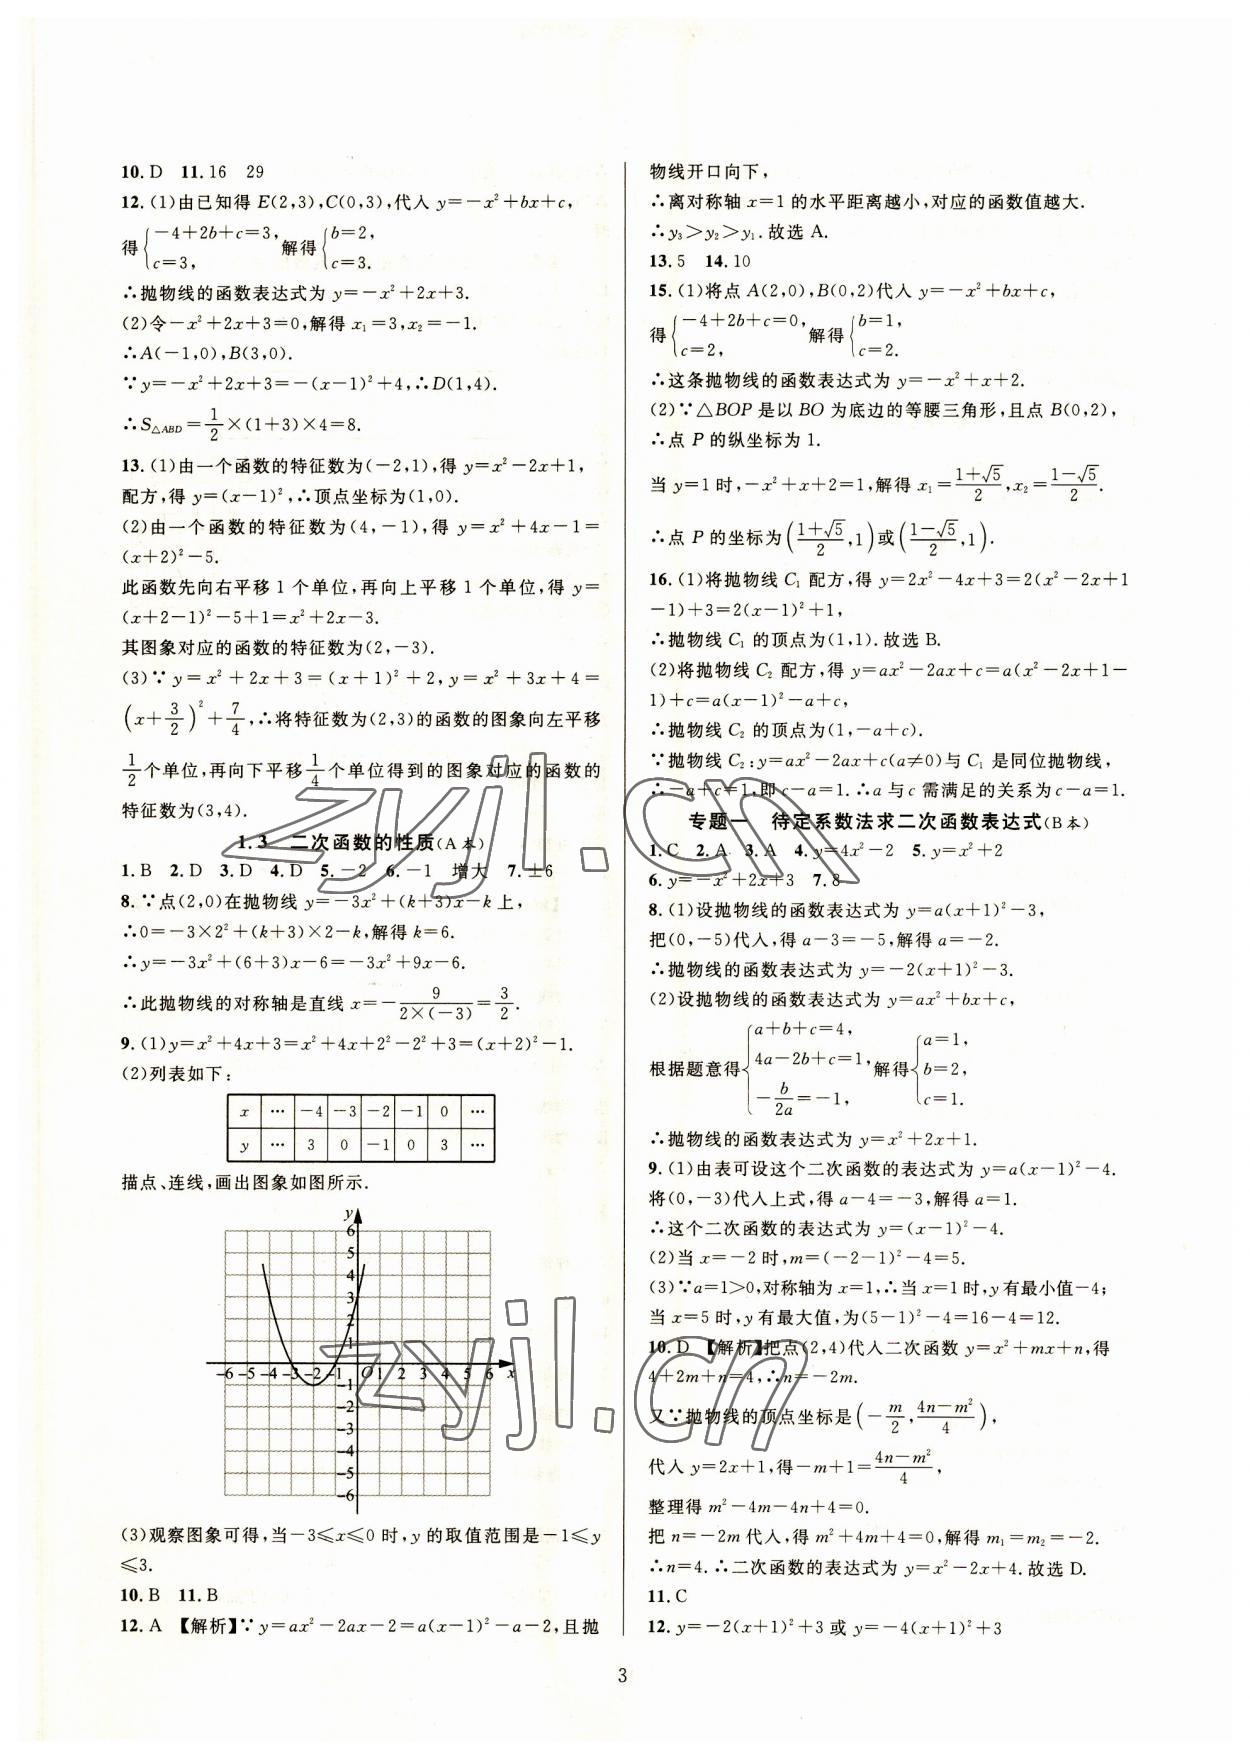 10. D　11. 16　29
12. (1)由已知得 E(2,3),C(0,3),代入 y=-x²+bx+c,
得{-4+2b+c=3, c=3, 解得{b=2, c=3.
∴抛物线的函数表达式为 y=-x²+2x+3.
(2)令-x²+2x+3=0,解得 x₁=3,x₂=-1.
∴A(-1,0),B(3,0).
∵y=-x²+2x+3=-(x-1)²+4,∴D(1,4).
∴S△ABD=1/2×(1+3)×4=8.
13. (1)由一个函数的特征数为(-2,1),得 y=x²-2x+1,
配方,得 y=(x-1)²,∴顶点坐标为(1,0).
(2)由一个函数的特征数为(4,-1),得 y=x²+4x-1=
(x+2)²-5.
此函数先向右平移 1 个单位,再向上平移 1 个单位,得 y=
(x+2-1)²-5+1=x²+2x-3.
其图象对应的函数的特征数为(2,-3).
(3)∵y=x²+2x+3=(x+1)²+2,y=x²+3x+4=
(x+3/2)²+7/4,∴将特征数为(2,3)的函数的图象向左平移
1/2个单位,再向下平移1/4个单位得到的图象对应的函数的
特征数为(3,4).
1.3　二次函数的性质(A本)
1. B　2. D　3. D　4. D　5. -2　6. -1　增大　7. ±6
8. ∵点(2,0)在抛物线 y=-3x²+(k+3)x-k上,
∴0=-3×2²+(k+3)×2-k,解得 k=6.
∴y=-3x²+(6+3)x-6=-3x²+9x-6.
∴此抛物线的对称轴是直线 x=-9/(2×(-3))=3/2.
9. (1)y=x²+4x+3=x²+4x+2²-2²+3=(x+2)²-1.
(2)列表如下:
x … -4 -3 -2 -1 0 …
y … 3 0 -1 0 3 …
描点、连线,画出图象如图所示.
y
6
5
4
3
2
1
-6 -5 -4 -3 -2 -1 O 1 2 3 4 5 6 x
-1
-2
-3
-4
-5
-6
(3)观察图象可得,当-3≤x≤0时,y的取值范围是-1≤y
≤3.
10. B　11. B
12. A　【解析】∵y=ax²-2ax-2=a(x-1)²-a-2,且抛
物线开口向下,
∴离对称轴 x=1 的水平距离越小,对应的函数值越大.
∴y₃>y₂>y₁.故选 A.
13. 5　14. 10
15. (1)将点 A(2,0),B(0,2)代入 y=-x²+bx+c,
得{-4+2b+c=0, c=2, 解得{b=1, c=2.
∴这条抛物线的函数表达式为 y=-x²+x+2.
(2)∵△BOP 是以 BO 为底边的等腰三角形,且点 B(0,2),
∴点 P 的纵坐标为 1.
当 y=1 时,-x²+x+2=1,解得 x₁=(1+√5)/2,x₂=(1-√5)/2.
∴点 P 的坐标为((1+√5)/2,1)或((1-√5)/2,1).
16. (1)将抛物线 C₁ 配方,得 y=2x²-4x+3=2(x²-2x+1
-1)+3=2(x-1)²+1,
∴抛物线 C₁ 的顶点为(1,1).故选 B.
(2)将抛物线 C₂ 配方,得 y=ax²-2ax+c=a(x²-2x+1-
1)+c=a(x-1)²-a+c,
∴抛物线 C₂ 的顶点为(1,-a+c).
∵抛物线 C₂:y=ax²-2ax+c(a≠0)与 C₁ 是同位抛物线,
∴-a+c=1,即 c-a=1.∴a 与 c 需满足的关系为 c-a=1.
专题一　待定系数法求二次函数表达式(B本)
1. C　2. A　3. A　4. y=4x²-2　5. y=x²+2
6. y=-x²+2x+3　7. 8
8. (1)设抛物线的函数表达式为 y=a(x+1)²-3,
把(0,-5)代入,得 a-3=-5,解得 a=-2.
∴抛物线的函数表达式为 y=-2(x+1)²-3.
(2)设抛物线的函数表达式为 y=ax²+bx+c,
根据题意得{a+b+c=4, 4a-2b+c=1, -b/2a=-1, 解得{a=1, b=2, c=1.
∴抛物线的函数表达式为 y=x²+2x+1.
9. (1)由表可设这个二次函数的表达式为 y=a(x-1)²-4.
将(0,-3)代入上式,得 a-4=-3,解得 a=1.
∴这个二次函数的表达式为 y=(x-1)²-4.
(2)当 x=-2 时,m=(-2-1)²-4=5.
(3)∵a=1>0,对称轴为 x=1,∴当 x=1 时,y 有最小值-4;
当 x=5 时,y 有最大值,为(5-1)²-4=16-4=12.
10. D　【解析】把点(2,4)代入二次函数 y=x²+mx+n,得
4+2m+n=4,∴n=-2m.
又∵抛物线的顶点坐标是(-m/2,(4n-m²)/4),
代入 y=2x+1,得-m+1=(4n-m²)/4,
整理得 m²-4m-4n+4=0.
把 n=-2m 代入,得 m²+4m+4=0,解得 m₁=m₂=-2.
∴n=4.∴二次函数的表达式为 y=x²-2x+4.故选 D.
11. C
12. y=-2(x+1)²+3 或 y=-4(x+1)²+3
3
zyjl.cn
zyjl.cn